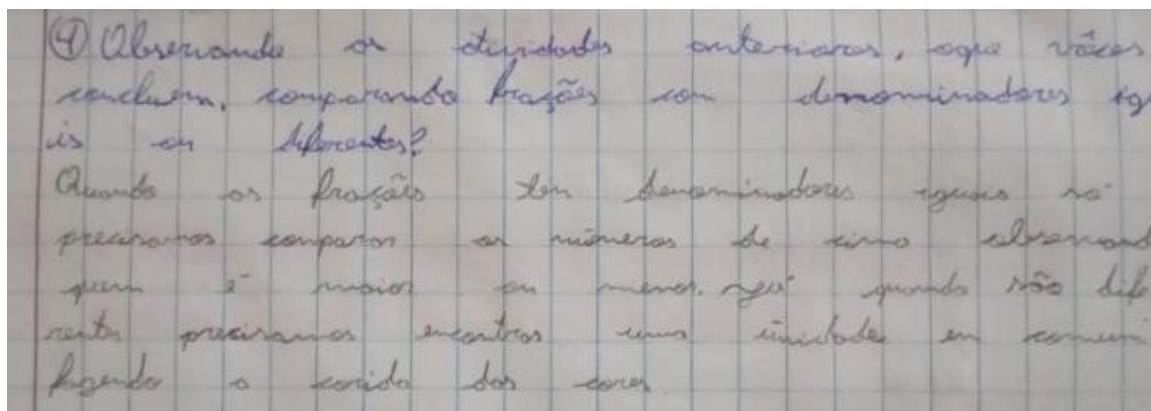 ④ Observando as atividades anteriores, oque vôces
concluem, comparando frações com denominadores igu
is ou diferentes?
Quando as frações tem denominadores iguais só
precisamos comparar os números de cima observand
quem é maior ou menor. quando são dife
rentes precisamos encontrar uma únidade em comum
fazendo a corrida das cores